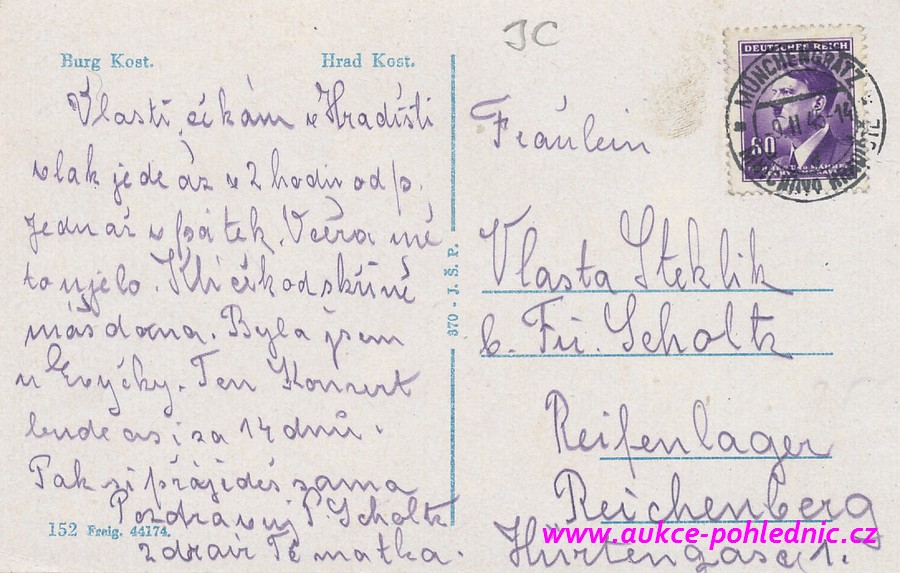 JC
Burg Kost. Hrad Kost.
DEUTSCHES REICH
60
MÜNCHENGRÄTZ
Vlasti, čekám v Hradišti
vlak jede až v 2 hodiny odp.
jednář v pátek. Včera mé
to ujelo. Klíček od skříně
máš doma. Byla jsem
u Evyčky. Ten Konzert
bude asi za 14 dnů.
Pak si přijideš sama
Pozdravuj P. Scholtz
zdraví Tě matka.
152 Freig. 44174.
370 - J. Š. P.
Fräulein
Vlasta Steklik
b. Fr. Scholtz
Reifenlager
Reichenberg
Hürtengasse 1.
www.aukce-pohlednic.cz